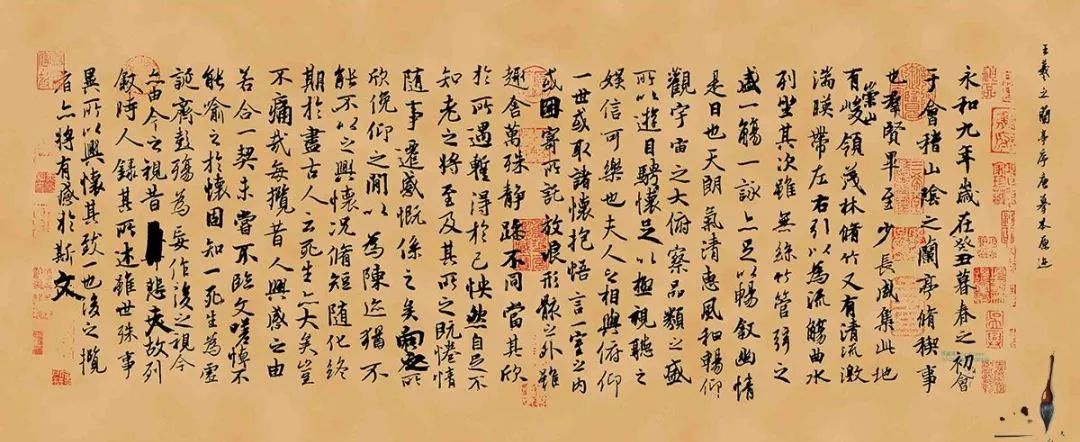 王羲之蘭亭序唐摹本原迹
永和九年歲在癸丑暮春之初會
于會稽山陰之蘭亭脩稧事
也羣賢畢至少長咸集此地
有崇山峻領茂林脩竹又有清流激
湍暎帶左右引以為流觴曲水
列坐其次雖無絲竹管弦之
盛一觴一詠亦足以暢敘幽情
是日也天朗氣清惠風和暢仰
觀宇宙之大俯察品類之盛
所以遊目騁懷足以極視聽之
娛信可樂也夫人之相與俯仰
一世或取諸懷抱悟言一室之內
或因寄所託放浪形骸之外雖
趣舍萬殊靜躁不同當其欣
於所遇暫得於己怏然自足不
知老之將至及其所之既惓情
隨事遷感慨係之矣向之所
欣俛仰之閒以為陳迹猶不
能不以之興懷況脩短隨化終
期於盡古人云死生亦大矣豈
不痛哉每攬昔人興感之由
若合一契未嘗不臨文嗟悼不
能喻之於懷固知一死生為虛
誕齊彭殤為妄作後之視今
亦由今之視昔悲夫故列
敘時人錄其所述雖世殊事
異所以興懷其致一也後之攬
者亦將有感於斯文